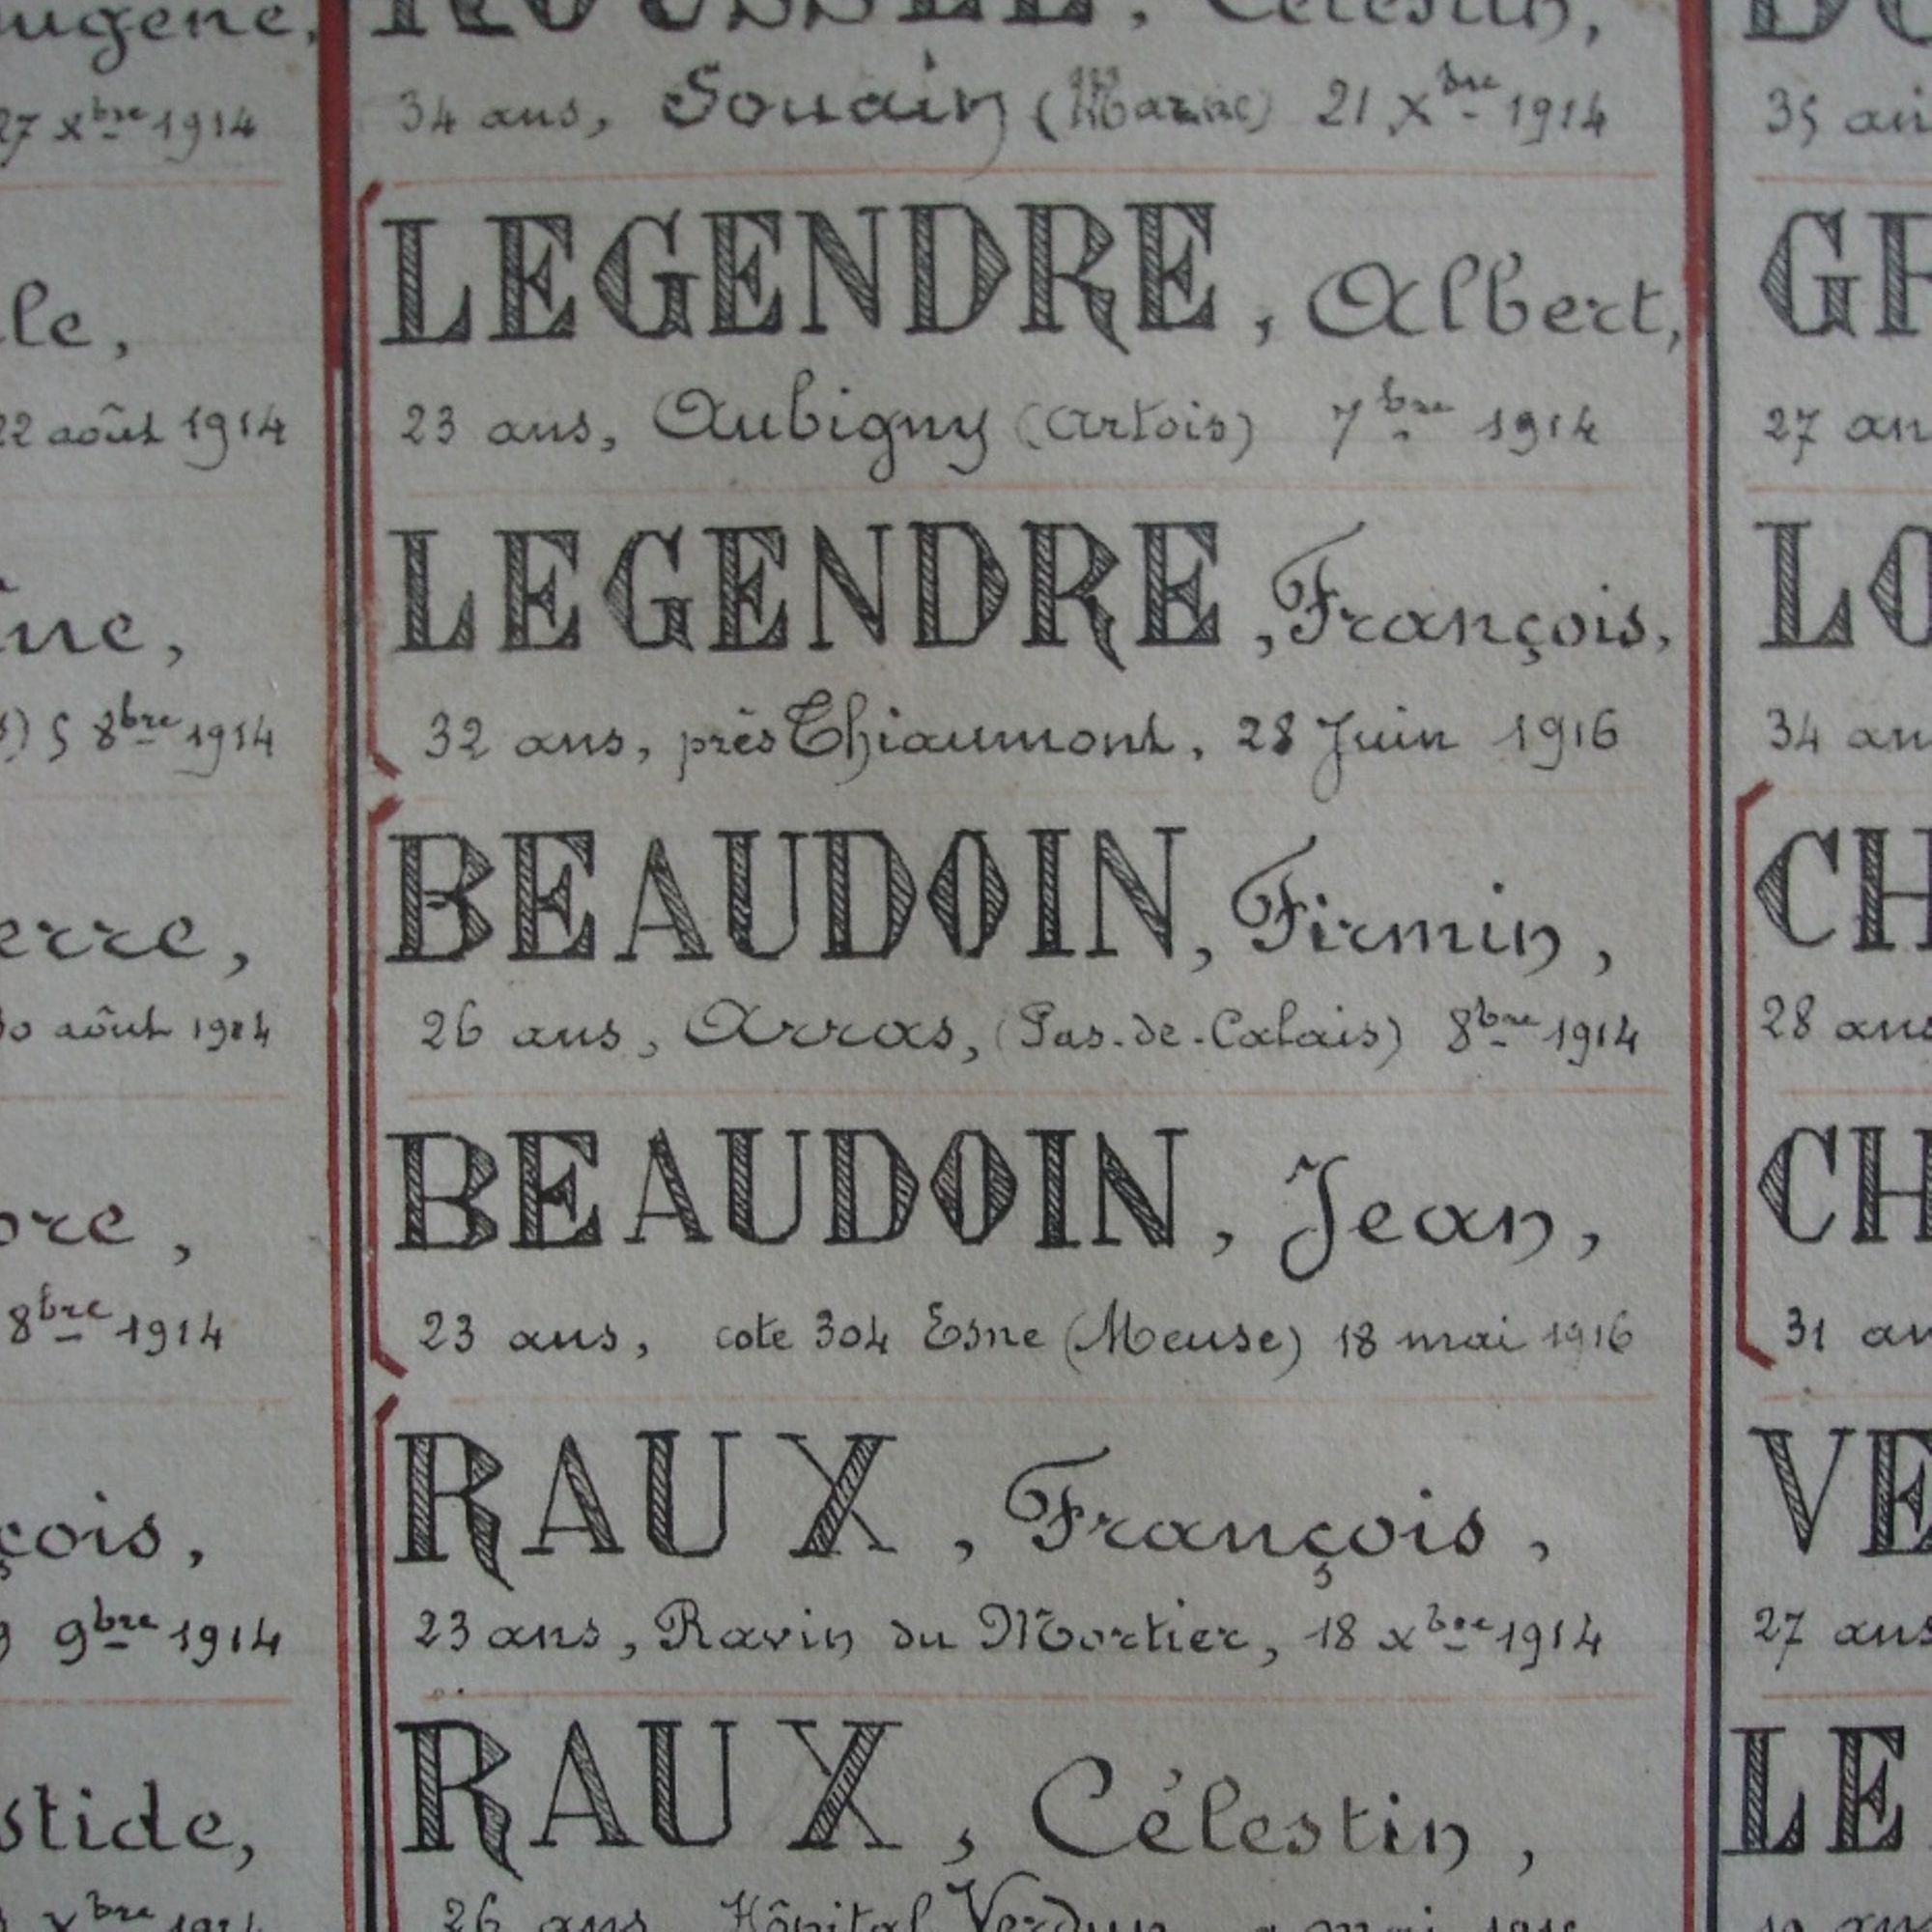 ugène,
27 xbre 1914
le,
22 août 1914
ne,
5 8bre 1914
erre,
30 août 1914
bre,
8bre 1914
çois,
9bre 1914
stide,
xbre 1914
ROUSSEL, Célestin,
34 ans, Souain (Marne) 21 Xbre 1914
LEGENDRE, Albert,
23 ans, Aubigny (Artois) 7bre 1914
LEGENDRE, François,
32 ans, près Thiaumont, 28 Juin 1916
BEAUDOIN, Firmin,
26 ans, Arras, (Pas-de-Calais) 8bre 1914
BEAUDOIN, Jean,
23 ans, cote 304 Esne (Meuse) 18 mai 1916
RAUX, François,
23 ans, Ravin du Mortier, 18 xbre 1914
RAUX, Célestin,
26 ans Hôpital Verdun mai
35 an
GR
27 an
LO
34 an
CH
28 ans
CH
31 an
VE
27 ans
LE